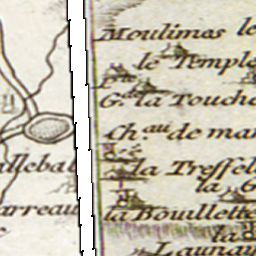 Moulimas le
le Temple
G. la Touche
Ch.au de mar
la Tressel
la G
la Bouillette
la B
Launay
allebat
arreau